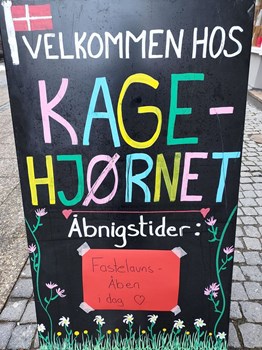 VELKOMMEN HOS
KAGE-
HJØRNET
Åbnigstider:
Fastelauns-
Åben
i dag